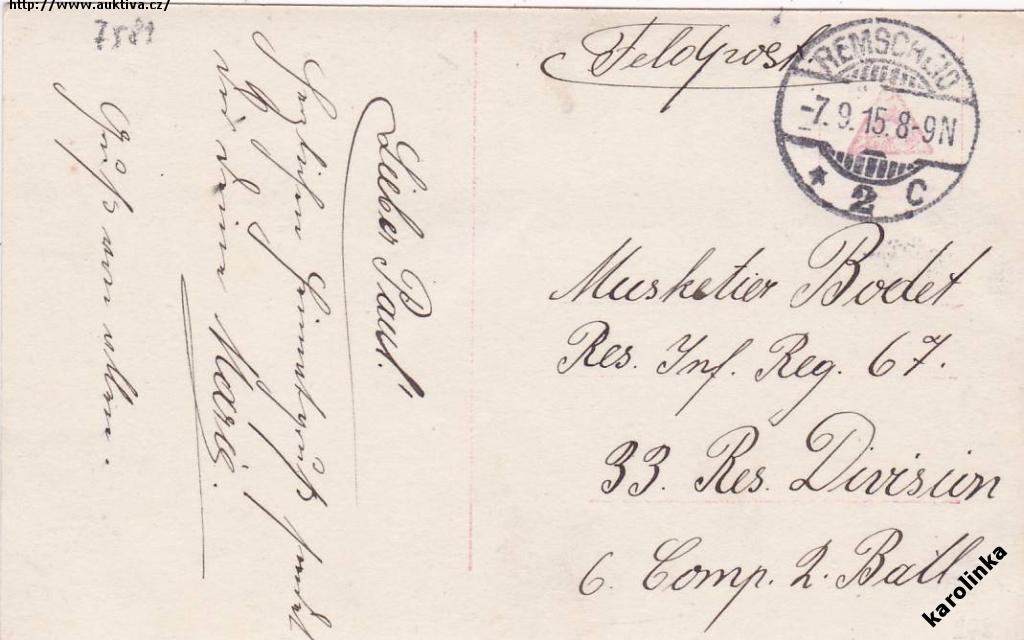 http://www.auktiva.cz/
7581
Feldpost
REMSCHEID
-7.9.15.8-9N
* 2 C
Musketier Bodet
Res. Inf. Reg. 67.
33. Res. Division
6. Comp. 2. Batl.
Lieber Paul!
Herzlichen Heimatgruß sendet
Dir Deine Marie.
Gruß von allen.
karolinka